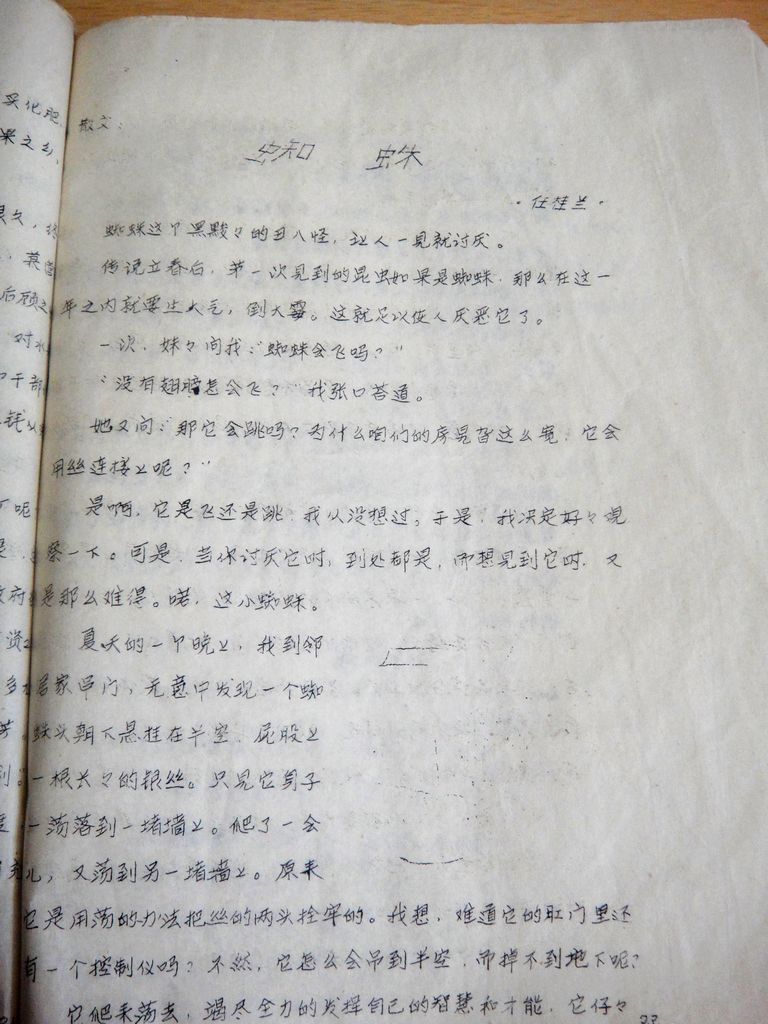 散文：
蜘蛛
·任桂兰·
蜘蛛这个黑黢々的丑八怪，让人一见就讨厌。
传说立春后，第一次见到的昆虫如果是蜘蛛，那么在这一
年之内就要生大气，倒大霉。这就足以使人厌恶它了。
一次，妹々问我：“蜘蛛会飞吗？”
“没有翅膀怎会飞？”我张口答道。
她又问：“那它会跳吗？为什么咱们的房晃旮这么宽，它会
用丝连接上呢？”
是啊，它是飞还是跳，我从没想过。于是，我决定好々观
察一下。可是，当你讨厌它时，到处都是，而想见到它时，又
是那么难得。喏，这小蜘蛛。
夏天的一个晚上，我到邻
居家串门，无意中发现一个蜘
蛛头朝下悬挂在半空，屁股上
一根长々的银丝。只见它身子
一荡落到一堵墙上。爬了一会
儿，又荡到另一堵墙上。原来
它是用荡的办法把丝的两头拴牢的。我想，难道它的肛门里还
有一个控制仪吗？不然，它怎么会吊到半空，而掉不到地下呢？
它爬来荡去，竭尽全力的发挥自己的智慧和才能，它仔々
买化肥
果之乡，
后顾之
对水
干部
钱以
呢
政府
资